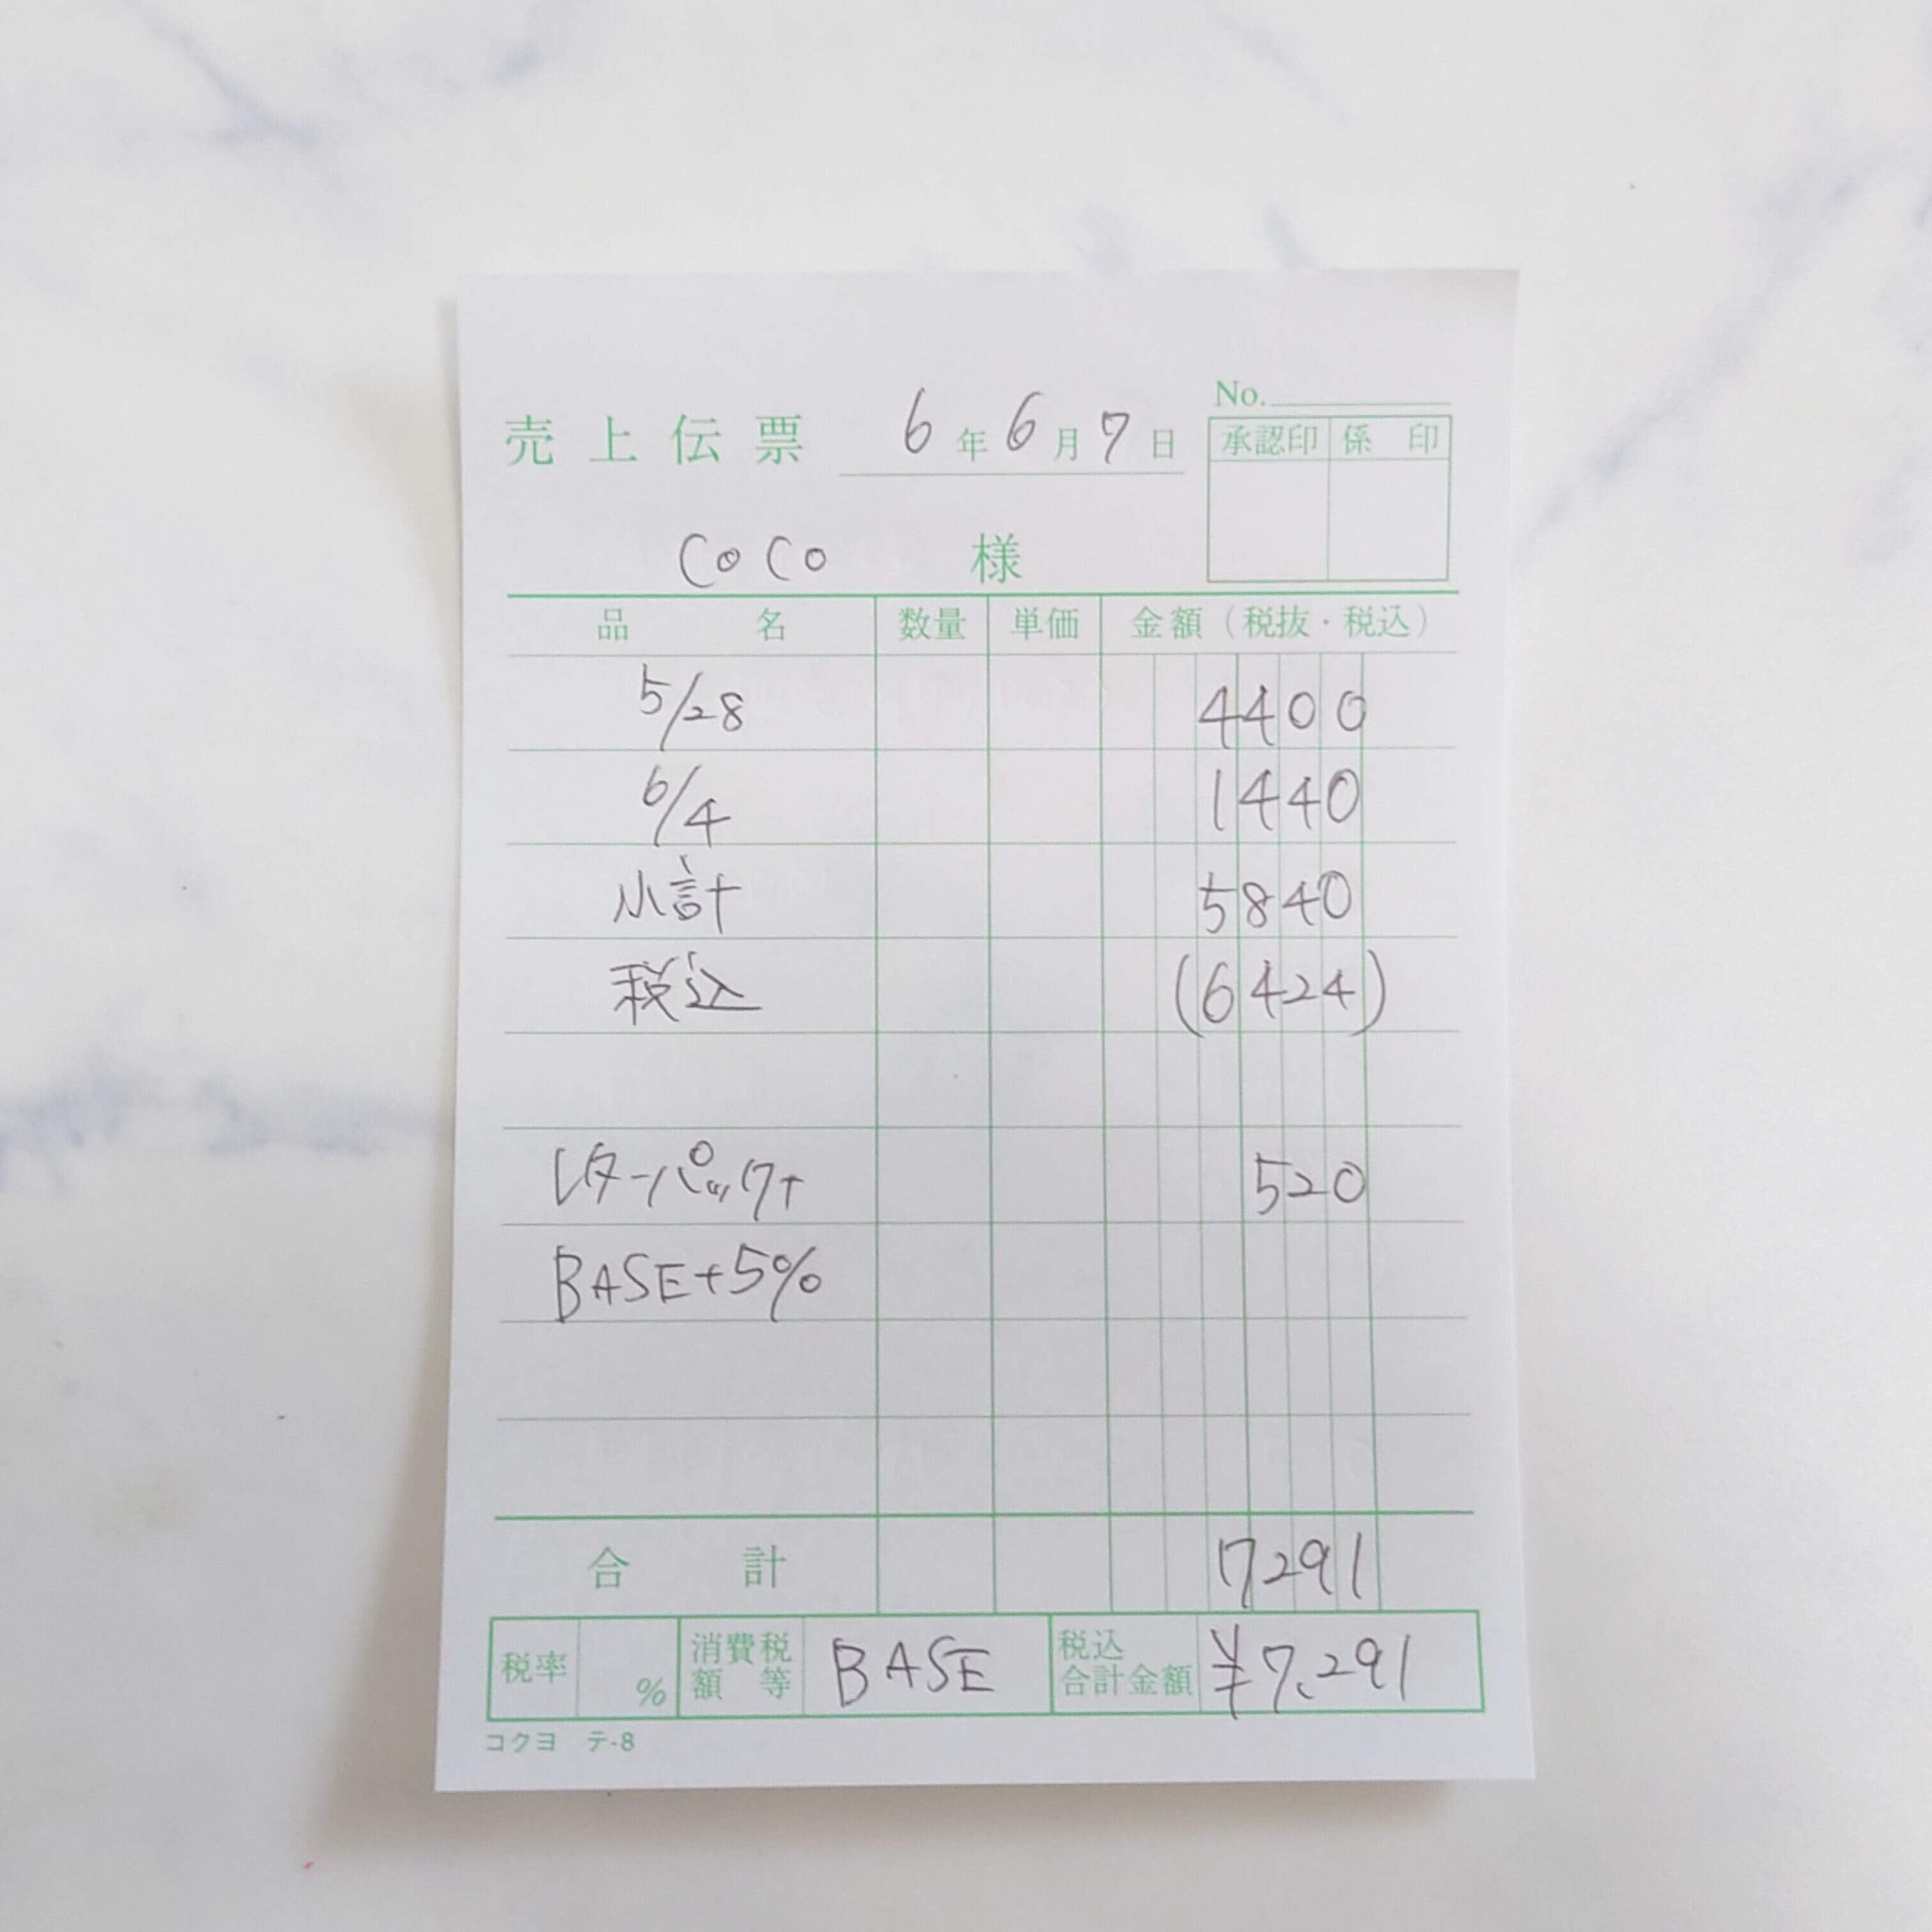 No.
売上伝票 6年6月7日
承認印 係印
CoCo 様
品名 数量 単価 金額(税抜・税込)
5/28 4400
6/4 1440
小計 5840
税込 (6424)
レターパック+ 520
BASE+5%
合計 7291
税率 % 消費税額等 BASE 税込合計金額 ¥7,291
コクヨ テ-8